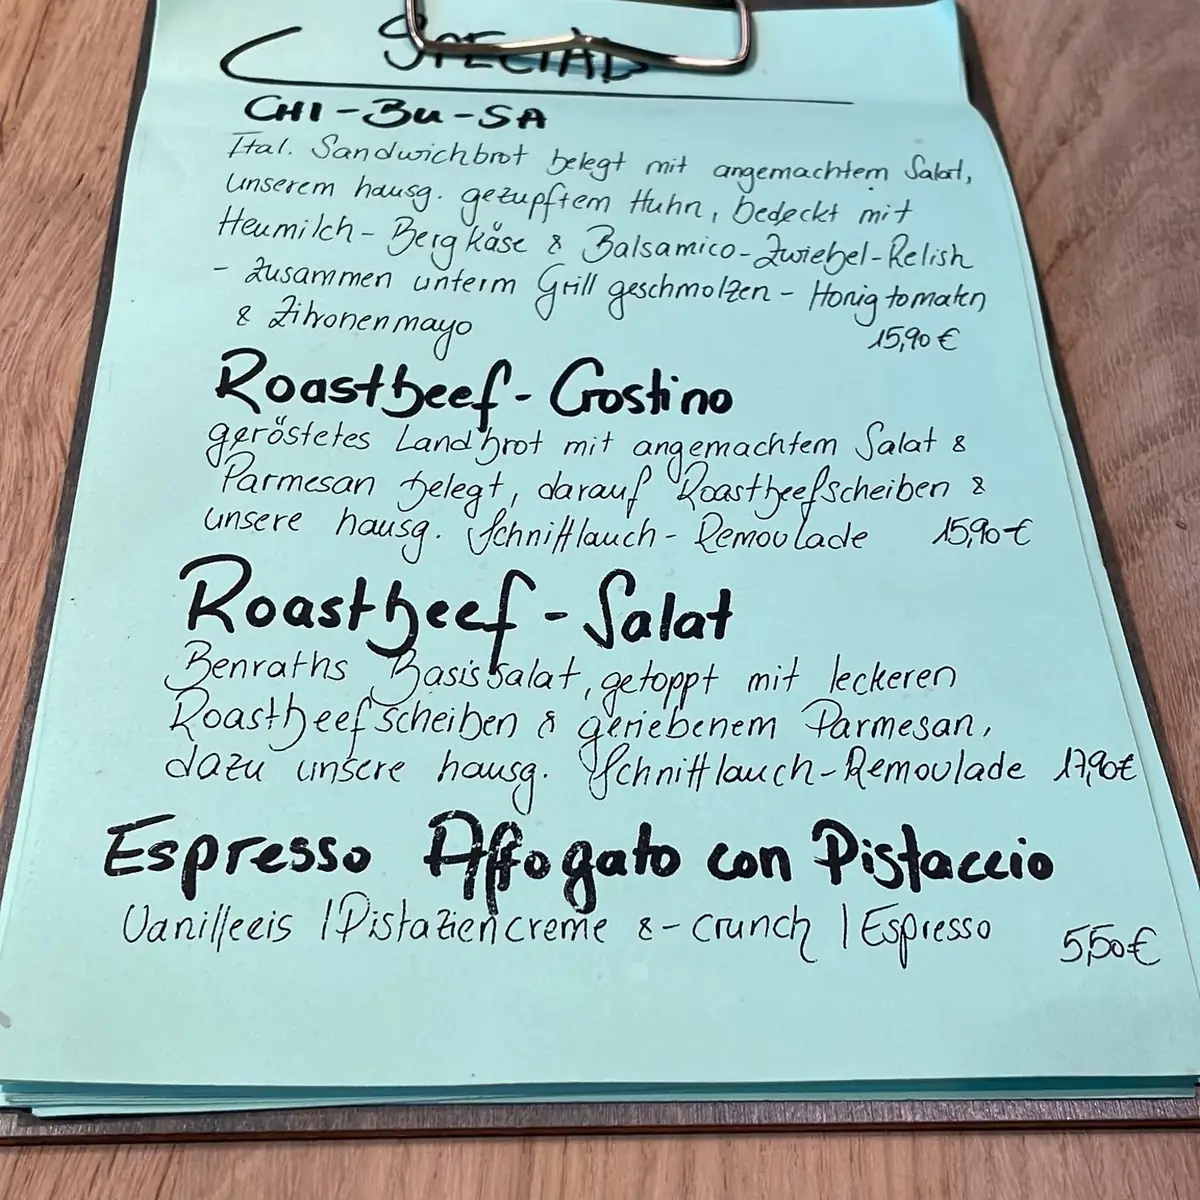 SPECIAL
CHI-BU-SA
Ital. Sandwichbrot belegt mit angemachtem Salat,
unserem hausg. gezupftem Huhn, bedeckt mit
Heumilch-Bergkäse & Balsamico-Zwiebel-Relish
- zusammen unterm Grill geschmolzen - Honigtomaten
& Zitronenmayo 15,90 €
Roastbeef-Crostino
geröstetes Landbrot mit angemachtem Salat &
Parmesan belegt, darauf Roastbeefscheiben &
unsere hausg. Schnittlauch-Remoulade 15,90 €
Roastbeef-Salat
Benraths Basissalat, getoppt mit leckeren
Roastbeefscheiben & geriebenem Parmesan,
dazu unsere hausg. Schnittlauch-Remoulade 17,90€
Espresso Affogato con Pistaccio
Vanilleeis | Pistaziencreme &-crunch | Espresso
5,50€